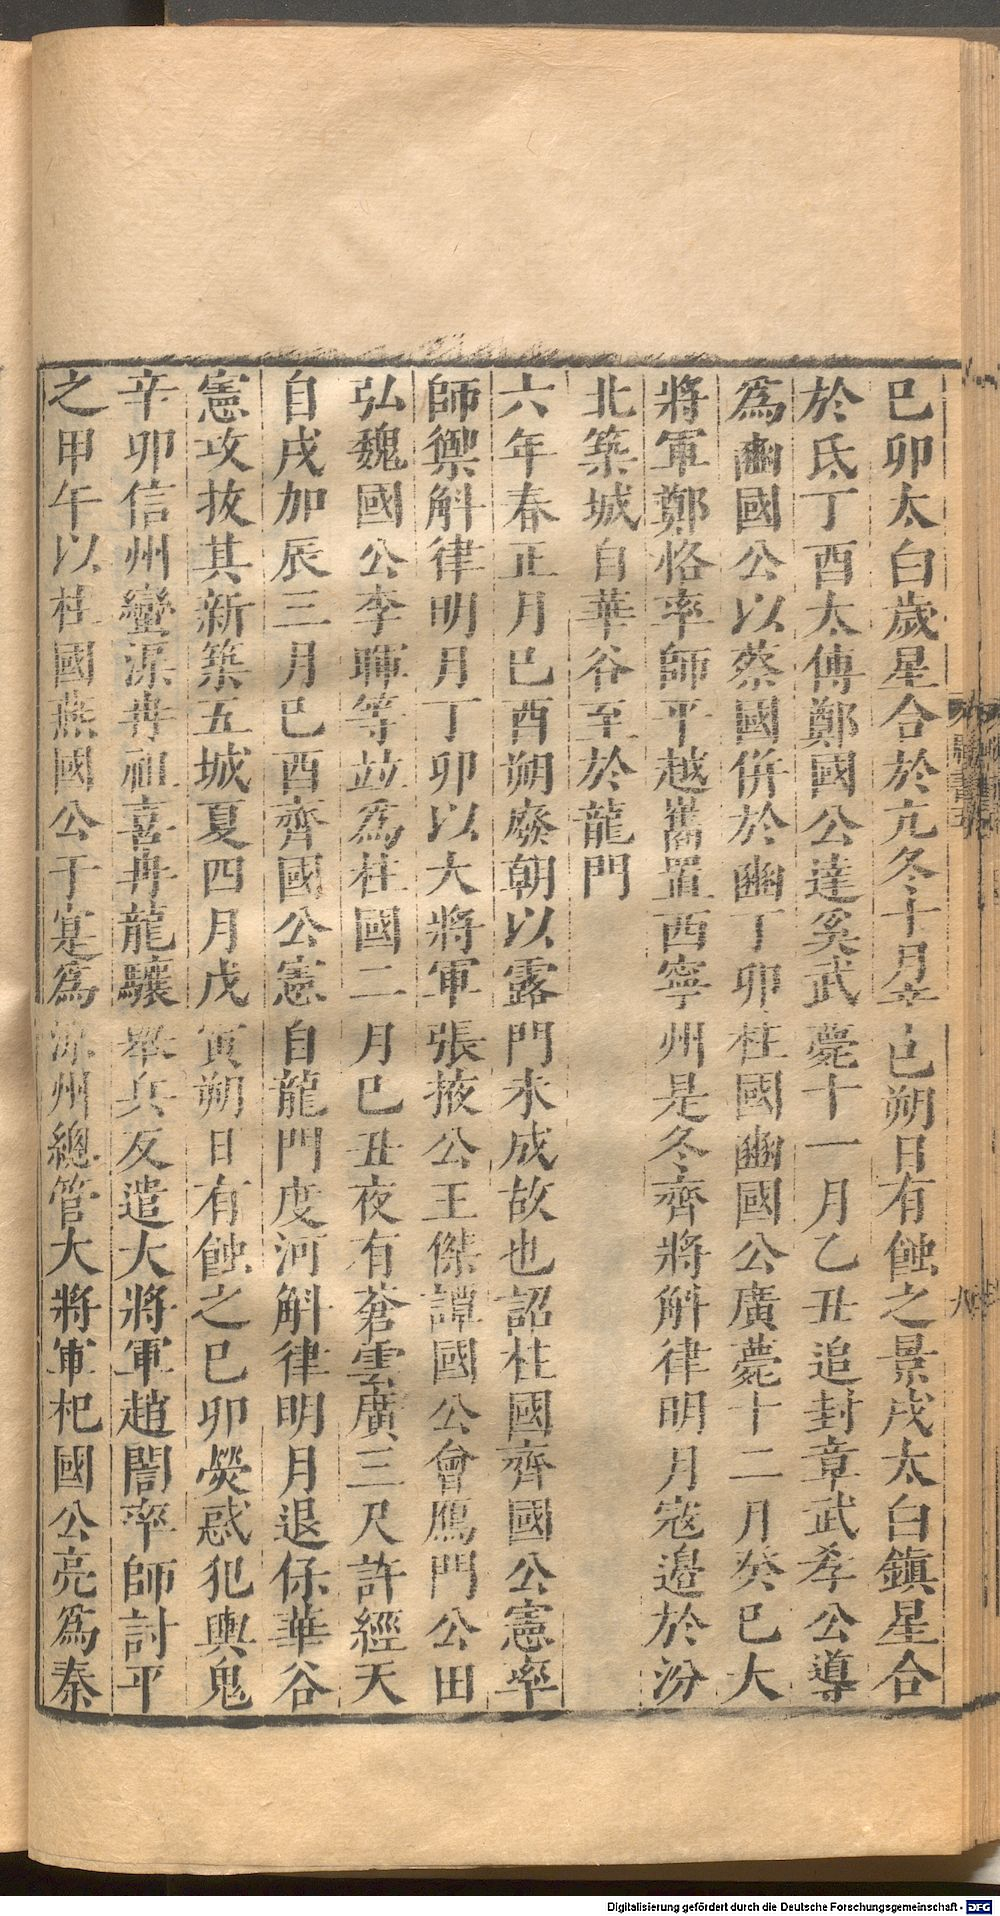 巳卯太白歲星合於亢冬十月辛巳朔日有蝕之景戌太白鎮星合
於氐丁酉太傅鄭國公達奚武薨十一月乙丑追封章武孝公導
爲豳國公以蔡國併於豳丁卯柱國豳國公廣薨十二月癸巳大
將軍鄭恪率師平越巂置西寧州是冬齊將斛律明月寇邊於汾
北築城自華谷至於龍門
六年春正月巳酉朔廢朝以露門未成故也詔柱國齊國公憲率
師禦斛律明月丁卯以大將軍張掖公王傑譚國公會鴈門公田
弘魏國公李暉等竝爲柱國二月巳丑夜有蒼雲廣三尺許經天
自戌加辰三月巳酉齊國公憲自龍門度河斛律明月退保華谷
憲攻拔其新築五城夏四月戊寅朔日有蝕之巳卯熒惑犯輿鬼
辛卯信州蠻渠冉祖喜冉龍驤舉兵反遣大將軍趙誾率師討平
之甲午以柱國燕國公于寔爲涼州總管大將軍杞國公亮爲秦
八
Digitalisierung gefördert durch die Deutsche Forschungsgemeinschaft - DFG